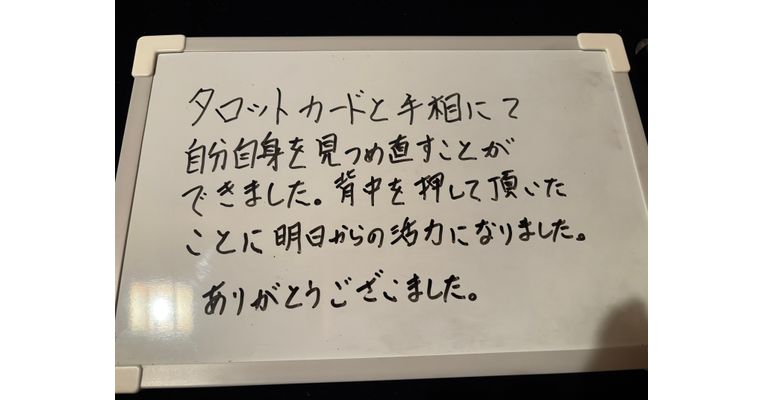 タロットカードと手相にて
自分自身を見つめ直すことが
できました。背中を押して頂いた
ことに明日からの活力になりました。
ありがとうございました。